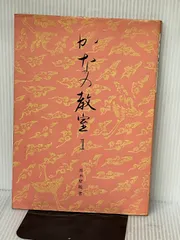 かなの教室 1